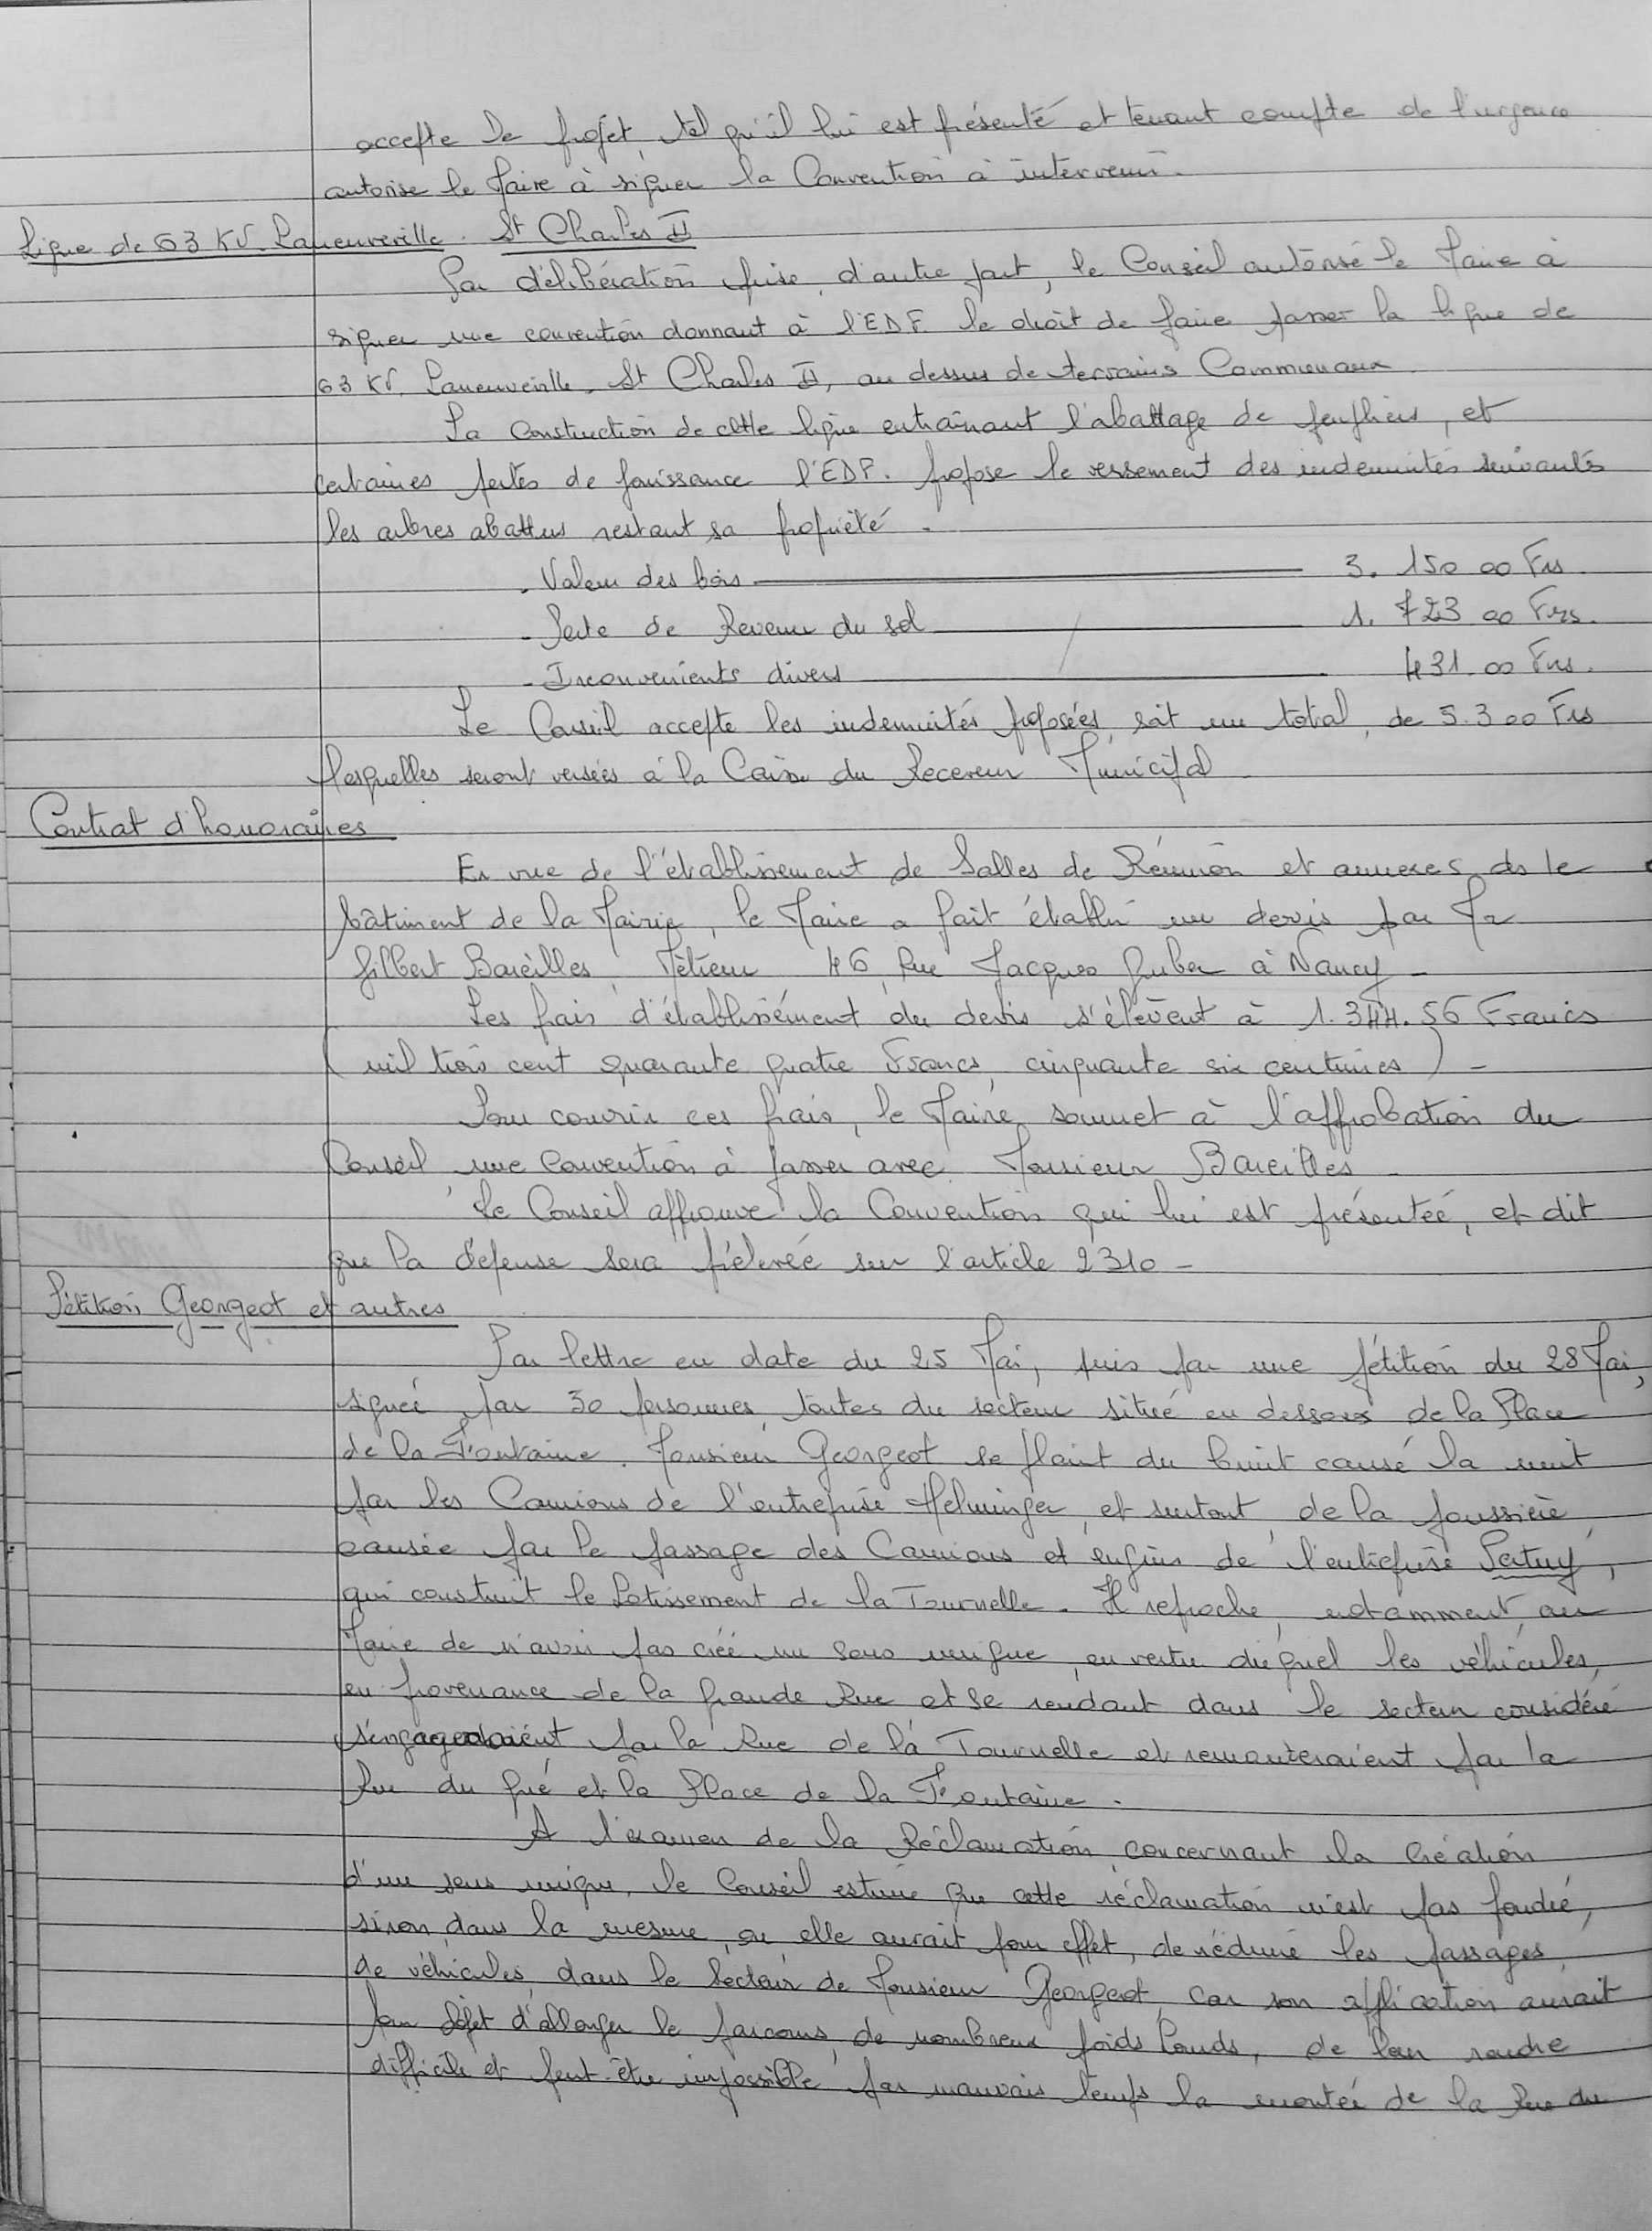 accepte le projet, tel qu'il lui est présenté et tenant compte de l'urgence
autorise le Maire à signer la Convention à intervenir.
Ligne de 63 KV. Laneuveville. St Charles II
Par délibération prise, d'autre part, le Conseil autorise le Maire à
signer une convention donnant à l'EDF. le droit de faire passer la ligne de
63 KV. Laneuveville. St Charles II, au dessus de terrains Communaux.
La Construction de cette ligne entraînant l'abattage de peupliers, et
certaines pertes de jouissance l'EDF. propose le versement des indemnités suivantes
les arbres abattus restant sa propriété.
. Valeur des bois 3. 150 00 Frs.
- Perte de Revenu du sol 1. 723 00 Frs.
- Inconvenients divers 431.00 Frs.
Le Conseil accepte les indemnités proposées, soit un total, de 5.300 Frs
lesquelles seront versées à la Caisse du Receveur Municipal
Contrat d'honoraires
En vue de l'établissement de Salles de Réunion et annexes ds le
bâtiment de la Mairie, le Maire a fait établir un devis par Mr
Gilbert Bareilles, Métreur 46, Rue Jacques Gruber à Nancy -
Les frais d'établissement du devis s'élèvent à 1.344.56 Francs
(mil trois cent quarante quatre Francs, cinquante six centimes) -
Pour couvrir ces frais, le Maire soumet à l'approbation du
Conseil une Convention à passer avec Monsieur Bareilles -
Le Conseil approuve la Convention qui lui est présentée, et dit
que la dépense sera prélevée sur l'article 2310 -
Pétition Georgeot et autres
Par lettre en date du 25 Mai, puis par une pétition du 28 Mai,
signée par 30 personnes, toutes du secteur situé en dessous de la Place
de la Fontaine. Monsieur Georgeot se plaint du bruit causé la nuit
par les Camions de l'entreprise Helminger, et surtout de la poussière,
causée par le passage des Camions et engins de l'entreprise Pertuy,
qui construit le Lotissement de la Tournelle. Il reproche, notamment, au
Maire de n'avoir pas créé un sens unique, en vertu duquel les véhicules,
en provenance de la Grande Rue et se rendant dans le secteur considéré
s'engageraient par la Rue de la Tournelle et remonteraient par la
Rue du Gué et la Place de la Fontaine.
A l'examen de la Réclamation, concernant la création
d'un sens unique, le Conseil estime que cette réclamation n'est pas fondée,
sinon dans la mesure, où elle aurait pour effet, de réduire les passages,
de véhicules, dans le Secteur de Monsieur Georgeot, car son application aurait
pour objet d'allonger le parcours, de nombreux poids lourds, de leur rendre
difficile et peut-être impossible par mauvais temps la montée de la Rue du